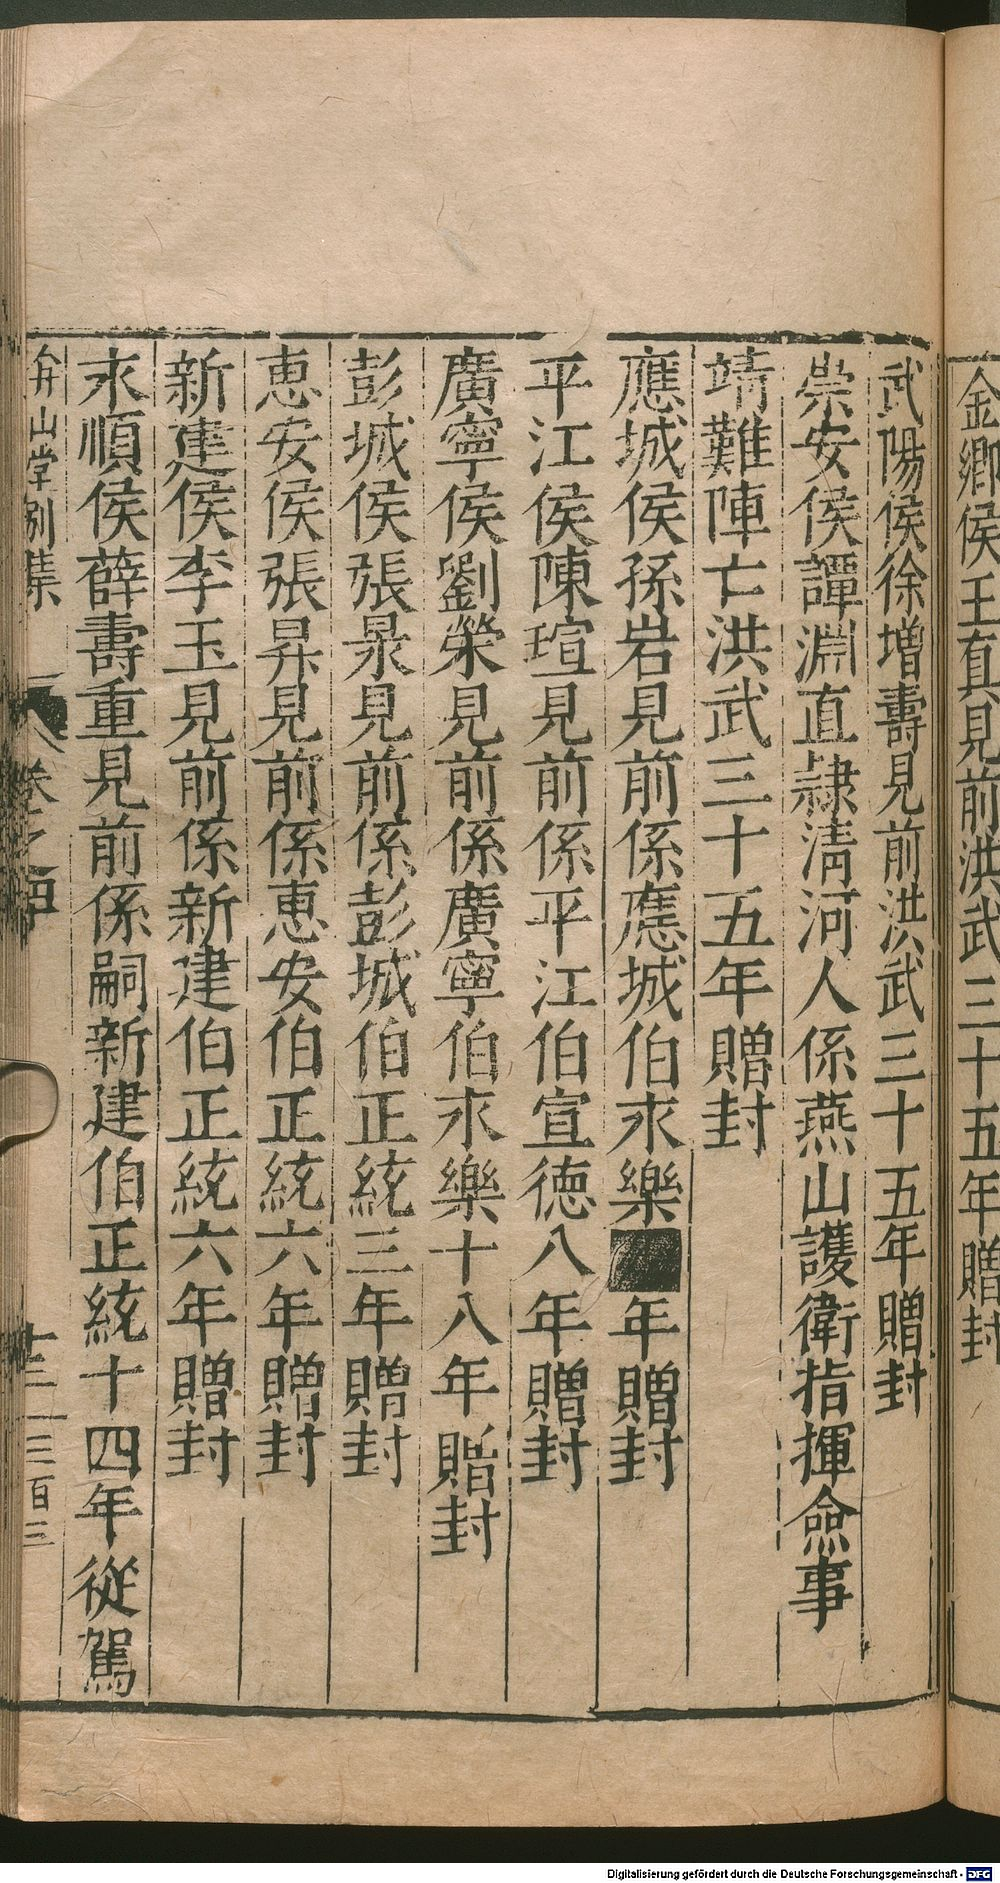 金鄉侯王真見前洪武三十五年贈封
武陽侯徐增壽見前洪武三十五年贈封
崇安侯譚淵直隷淸河人係燕山護衛指揮僉事
靖難陣亡洪武三十五年贈封
應城侯孫岩見前係應城伯永樂年贈封
平江侯陳瑄見前係平江伯宣德八年贈封
廣寧侯劉榮見前係廣寧伯永樂十八年贈封
彭城侯張㫤見前係彭城伯正統三年贈封
恵安侯張昇見前係恵安伯正統六年贈封
新建侯李玉見前係新建伯正統六年贈封
永順侯薛壽重見前係嗣新建伯正統十四年從駕
弇山堂別集 卷之 十三 三百三
Digitalisierung gefördert durch die Deutsche Forschungsgemeinschaft - DFG